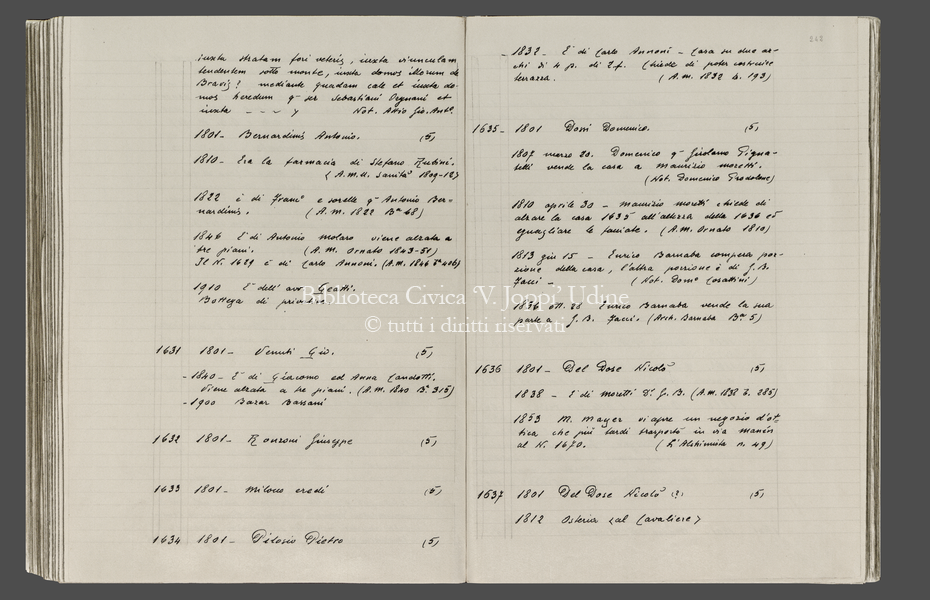 iuxta stratam fori veteris, iuxta viunculam
tendentem sotto monte, iuxta domos illorum de
Bravis! mediante quadam cale et iuxta do-
mos heredum q- ser Sebastiani et
iuxta - - - y Not. Attio Gio. Ant.
1801- Bernardinis Antonio. (5)
1810- Era la farmacia di Stefano Rubini.
(A.M.U. Sanità 1809-12)
1822 è di Franc° e sorelle q- Antonio Ber-
nardinis. (A.M. 1822 Ba 68)
1846 E' di Antonio Molaro viene alzata a
tre piani. (A.M. Ornato 1843-51)
Il N. 1629 è di Carlo Annoni. (A.M. 1846 406)
1910 E' dell' avv. Geatti.
Bottega di
Biblioteca Civica 'V. Joppi' Udine
© tutti i diritti riservati
1631 1801- Venuti Gio. (5)
- 1840- E' di Giacomo ed Anna Candotti.
Viene alzata a tre piani. (A.M. 1840 B. 315)
- 1900 Bazar Bassani
1632 1801- Ronzoni Giuseppe (5)
1633 1801- Milocco eredi (5)
1634 1801- Pilosio Pietro (5)
248
- 1832- E' di Carlo Annoni - Casa su due ar-
chi di 4 p. di 2 f. Chiede di poter costruire
terrazza. (A.M. 1832 b. 193)
1635- 1801 Dossi Domenico. (5)
1807 marzo 20. Domenico q- Girolamo Pigna-
telli vende la casa a Maurizio Moretti.
(Not. Domenico Pradolone)
1810 aprile 30 - Maurizio Moretti chiede di
alzare la casa 1635 all'altezza della 1636 ed
eguagliare le facciate. (A.M. Ornato 1810)
1813 giu 15 - Enrico Barnaba compera por-
zione della casa, l'altra porzione è di G.B.
Facci - (Not. Dom° Cosattini)
1836 ott. 26 Enrico Barnaba vende la sua
parte a G.B. Facci. (Arch. Barnaba Ba 5)
1636 1801- Del Dose Nicolò (5)
1838 - E' di Moretti D. G.B. (A.M. 1838 b. 285)
1853 M. Mayer vi apre un negozio d'ot-
tica che più tardi trasportò in via Manin
al N. 1670. (L'Alchimista n. 49)
1637 1801 Del Dose Nicolò (?) (5)
1812 Osteria <al Cavaliere>